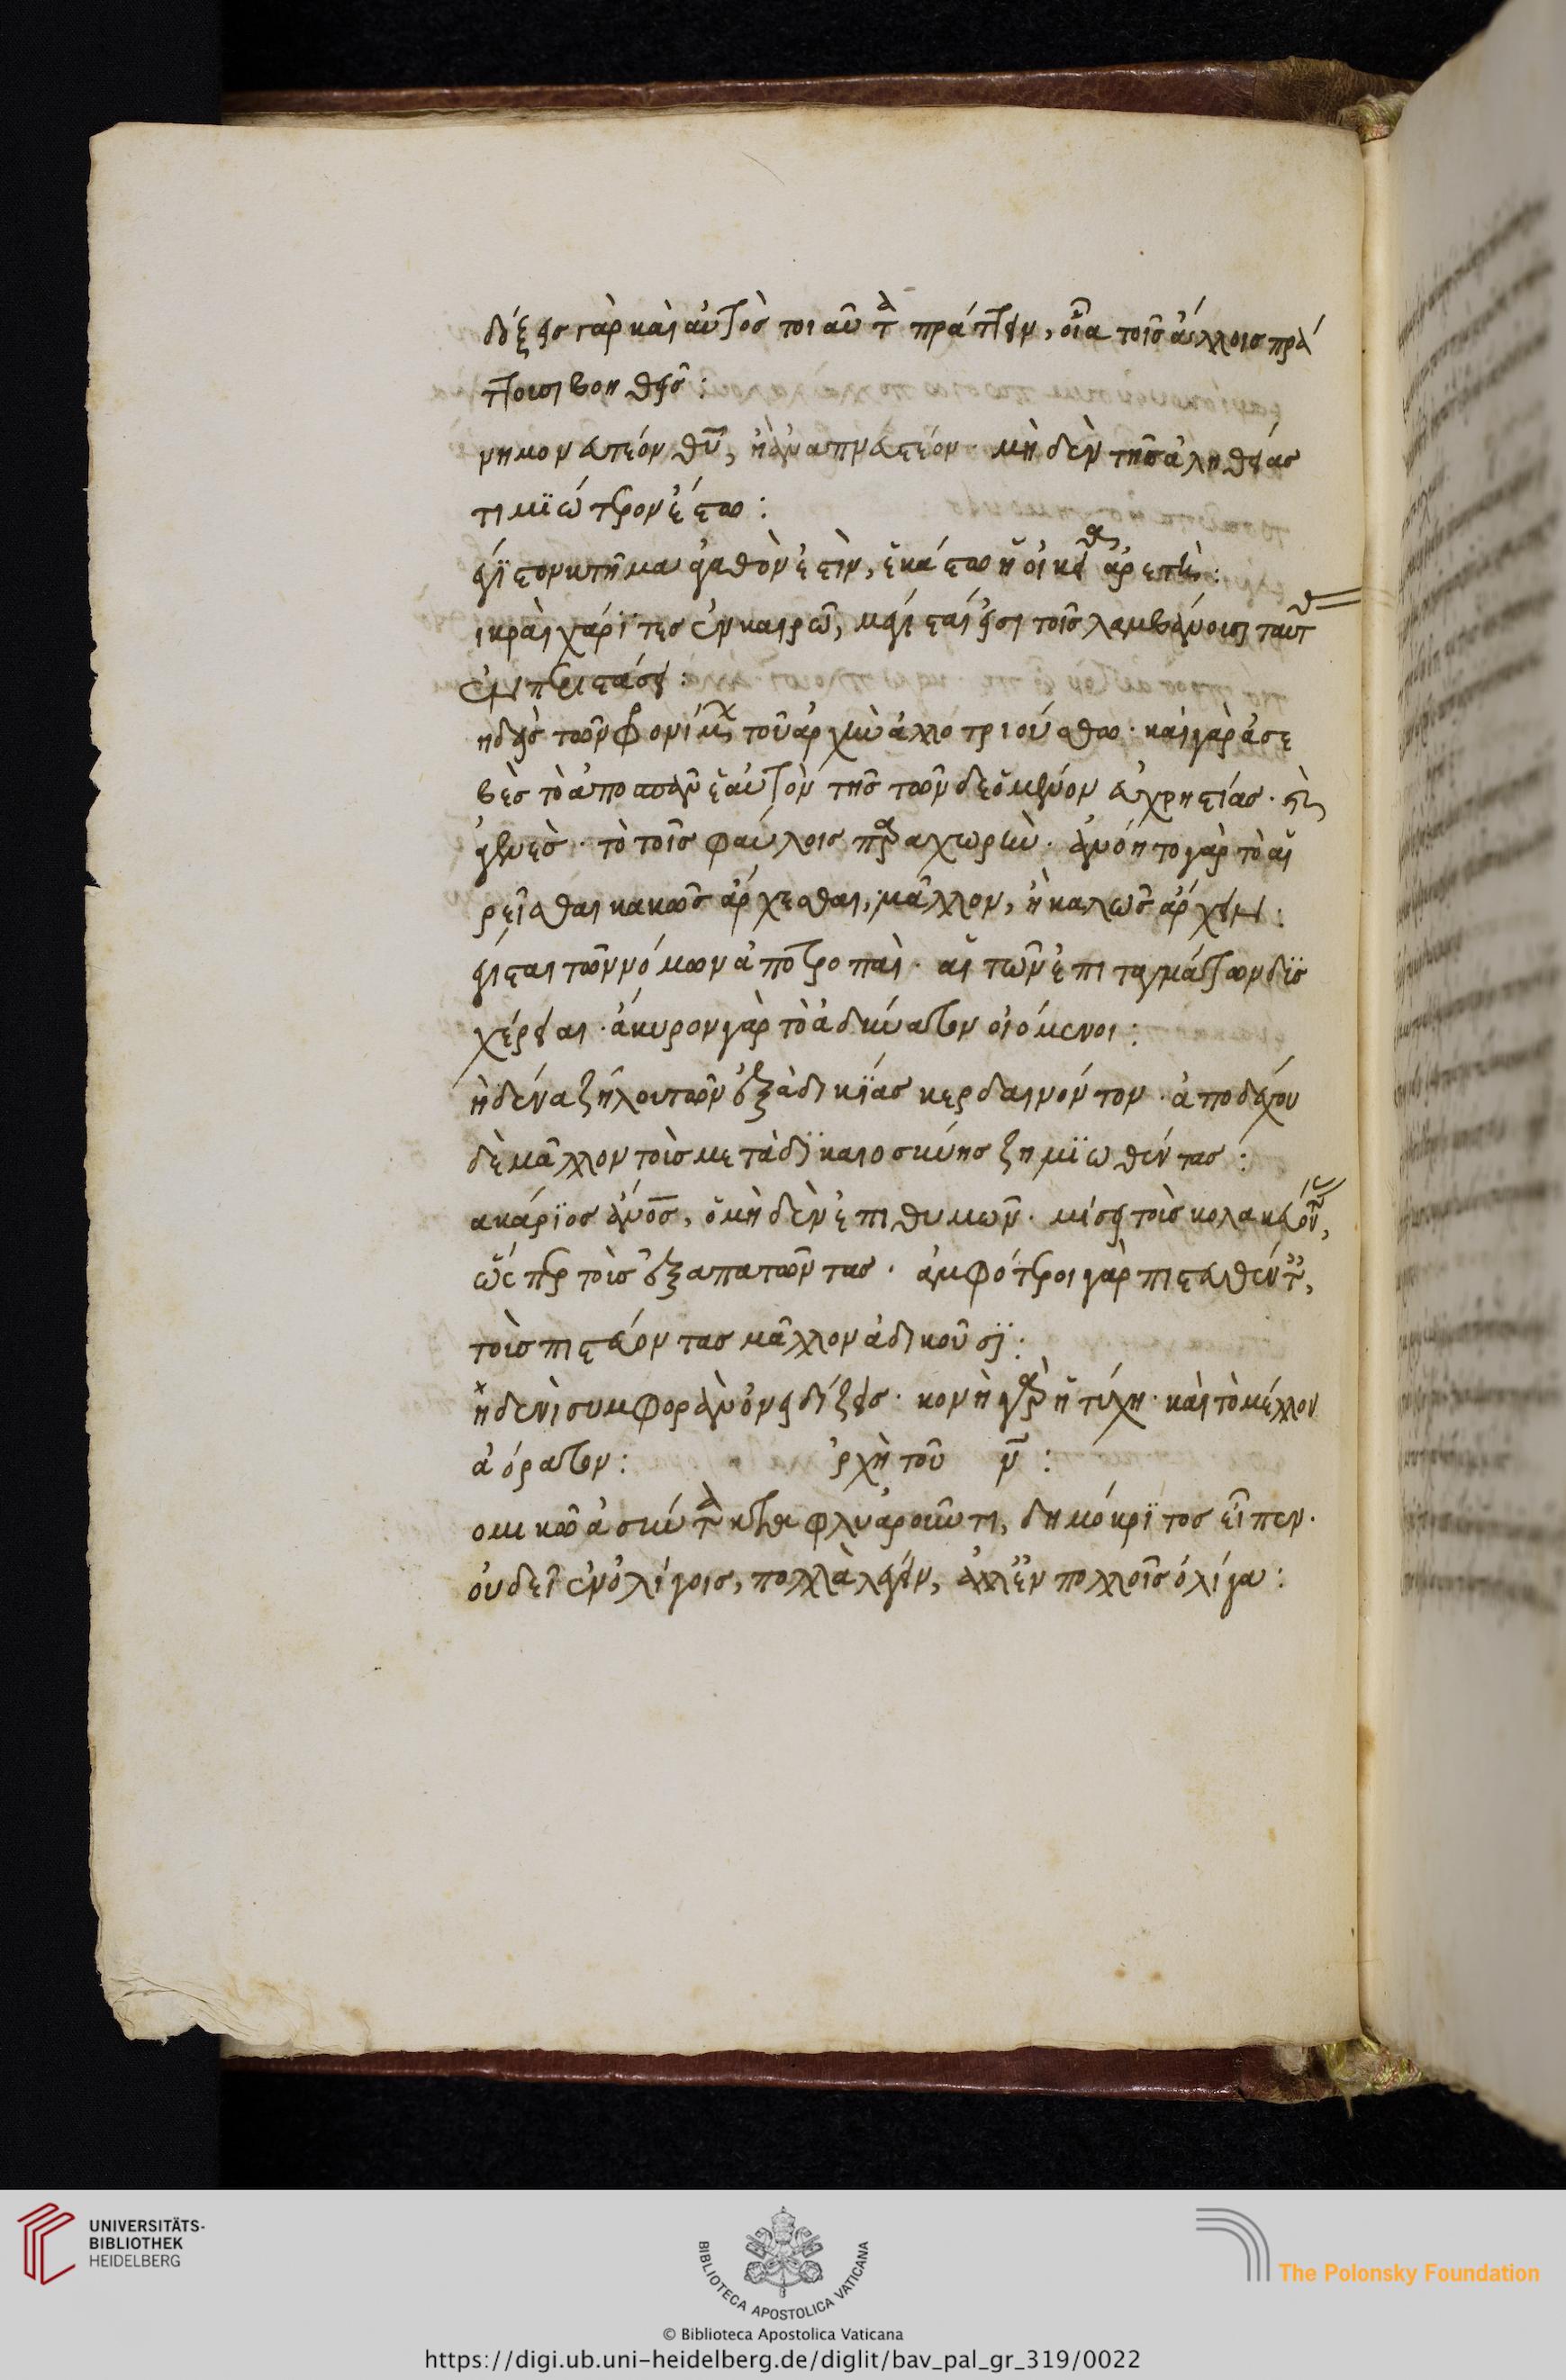 δόξεις γὰρ καὶ αὐτὸς τοιαῦτα πράττειν, οἷα τοῖς ἄλλοις πρά
ττουσι βοηθεῖς :
νημονευτέον θυ, ἢ ἀναπνευστέον · μηδὲν τῆς ἀληθείας
τιμϊώτερον ἔστω :
έγϊστον κτῆμα ἀγαθόν ἐστιν, ἑκάστω ἡ οἰκεία ἀρετή :
ικραὶ χάρϊτες ἐν καιρῶ, μέγισται εἰσι τοῖς λαμβάνουσι ταύτας
ἐν περιστάσει :
ηδεὶς τῶν φρονίμων τοῦ ἄρχειν ἀλλοτριούσθω · καὶ γὰρ ἀσε
βὲς τὸ ἀποσπᾶν ἑαυτὸν τῆς τῶν δεομένον εὐχρηστίας · καὶ
ἀγενὲς · τὸ τοῖς φαύλοις παραχωρεῖν · ἀνόητο γὰρ τὸ αἱ
ρεῖσθαι κακῶς ἄρχεσθαι, μᾶλλον, ἢ καλῶς ἄρχειν :
έγισται τῶν νόμων ἀποτροπαὶ · αἱ τῶν ἐπιταγμάτων δϊσ
χέρειαι · ἄκυρον γὰρ τὸ ἀδύνατον οἰόμενοι :
ηδένα ζήλου τῶν ἐξ ἀδικϊας κερδαινόντον · ἀποδέχου
δὲ μᾶλλον τοὺς μετὰ δϊκαιοσύνης ζημϊωθέντας :
ακάρϊος ἄνος, ὁ μηδὲν ἐπιθυμῶν · μίσει τοὺς κολακεύοντας,
ὥσπερ τοὺς ἐξαπατῶντας · ἀμφότεροι γὰρ πιστευθέντες,
τοὺς πιστεύοντας μᾶλλον ἀδικοῦσϊ :
ηδενὶ συμφορὰν ὀνειδίζεις · κονὴ γὰρ ἡ τύχη · καὶ τὸ μέλλον
ἀόρατον : ἀρχὴ τοῦ ν :
ομικῶ ἀσύνετα φλυαροῦντι, δημόκρϊτος εἶπεν ·
οὐ δεῖ ἐν ὀλίγοις, πολλὰ λέγειν, ἀλλ' ἐν πολλοῖς ὀλίγα :
UNIVERSITÄTS-
BIBLIOTHEK
HEIDELBERG
BIBLIOTECA APOSTOLICA VATICANA
The Polonsky Foundation
© Biblioteca Apostolica Vaticana
https://digi.ub.uni-heidelberg.de/diglit/bav_pal_gr_319/0022